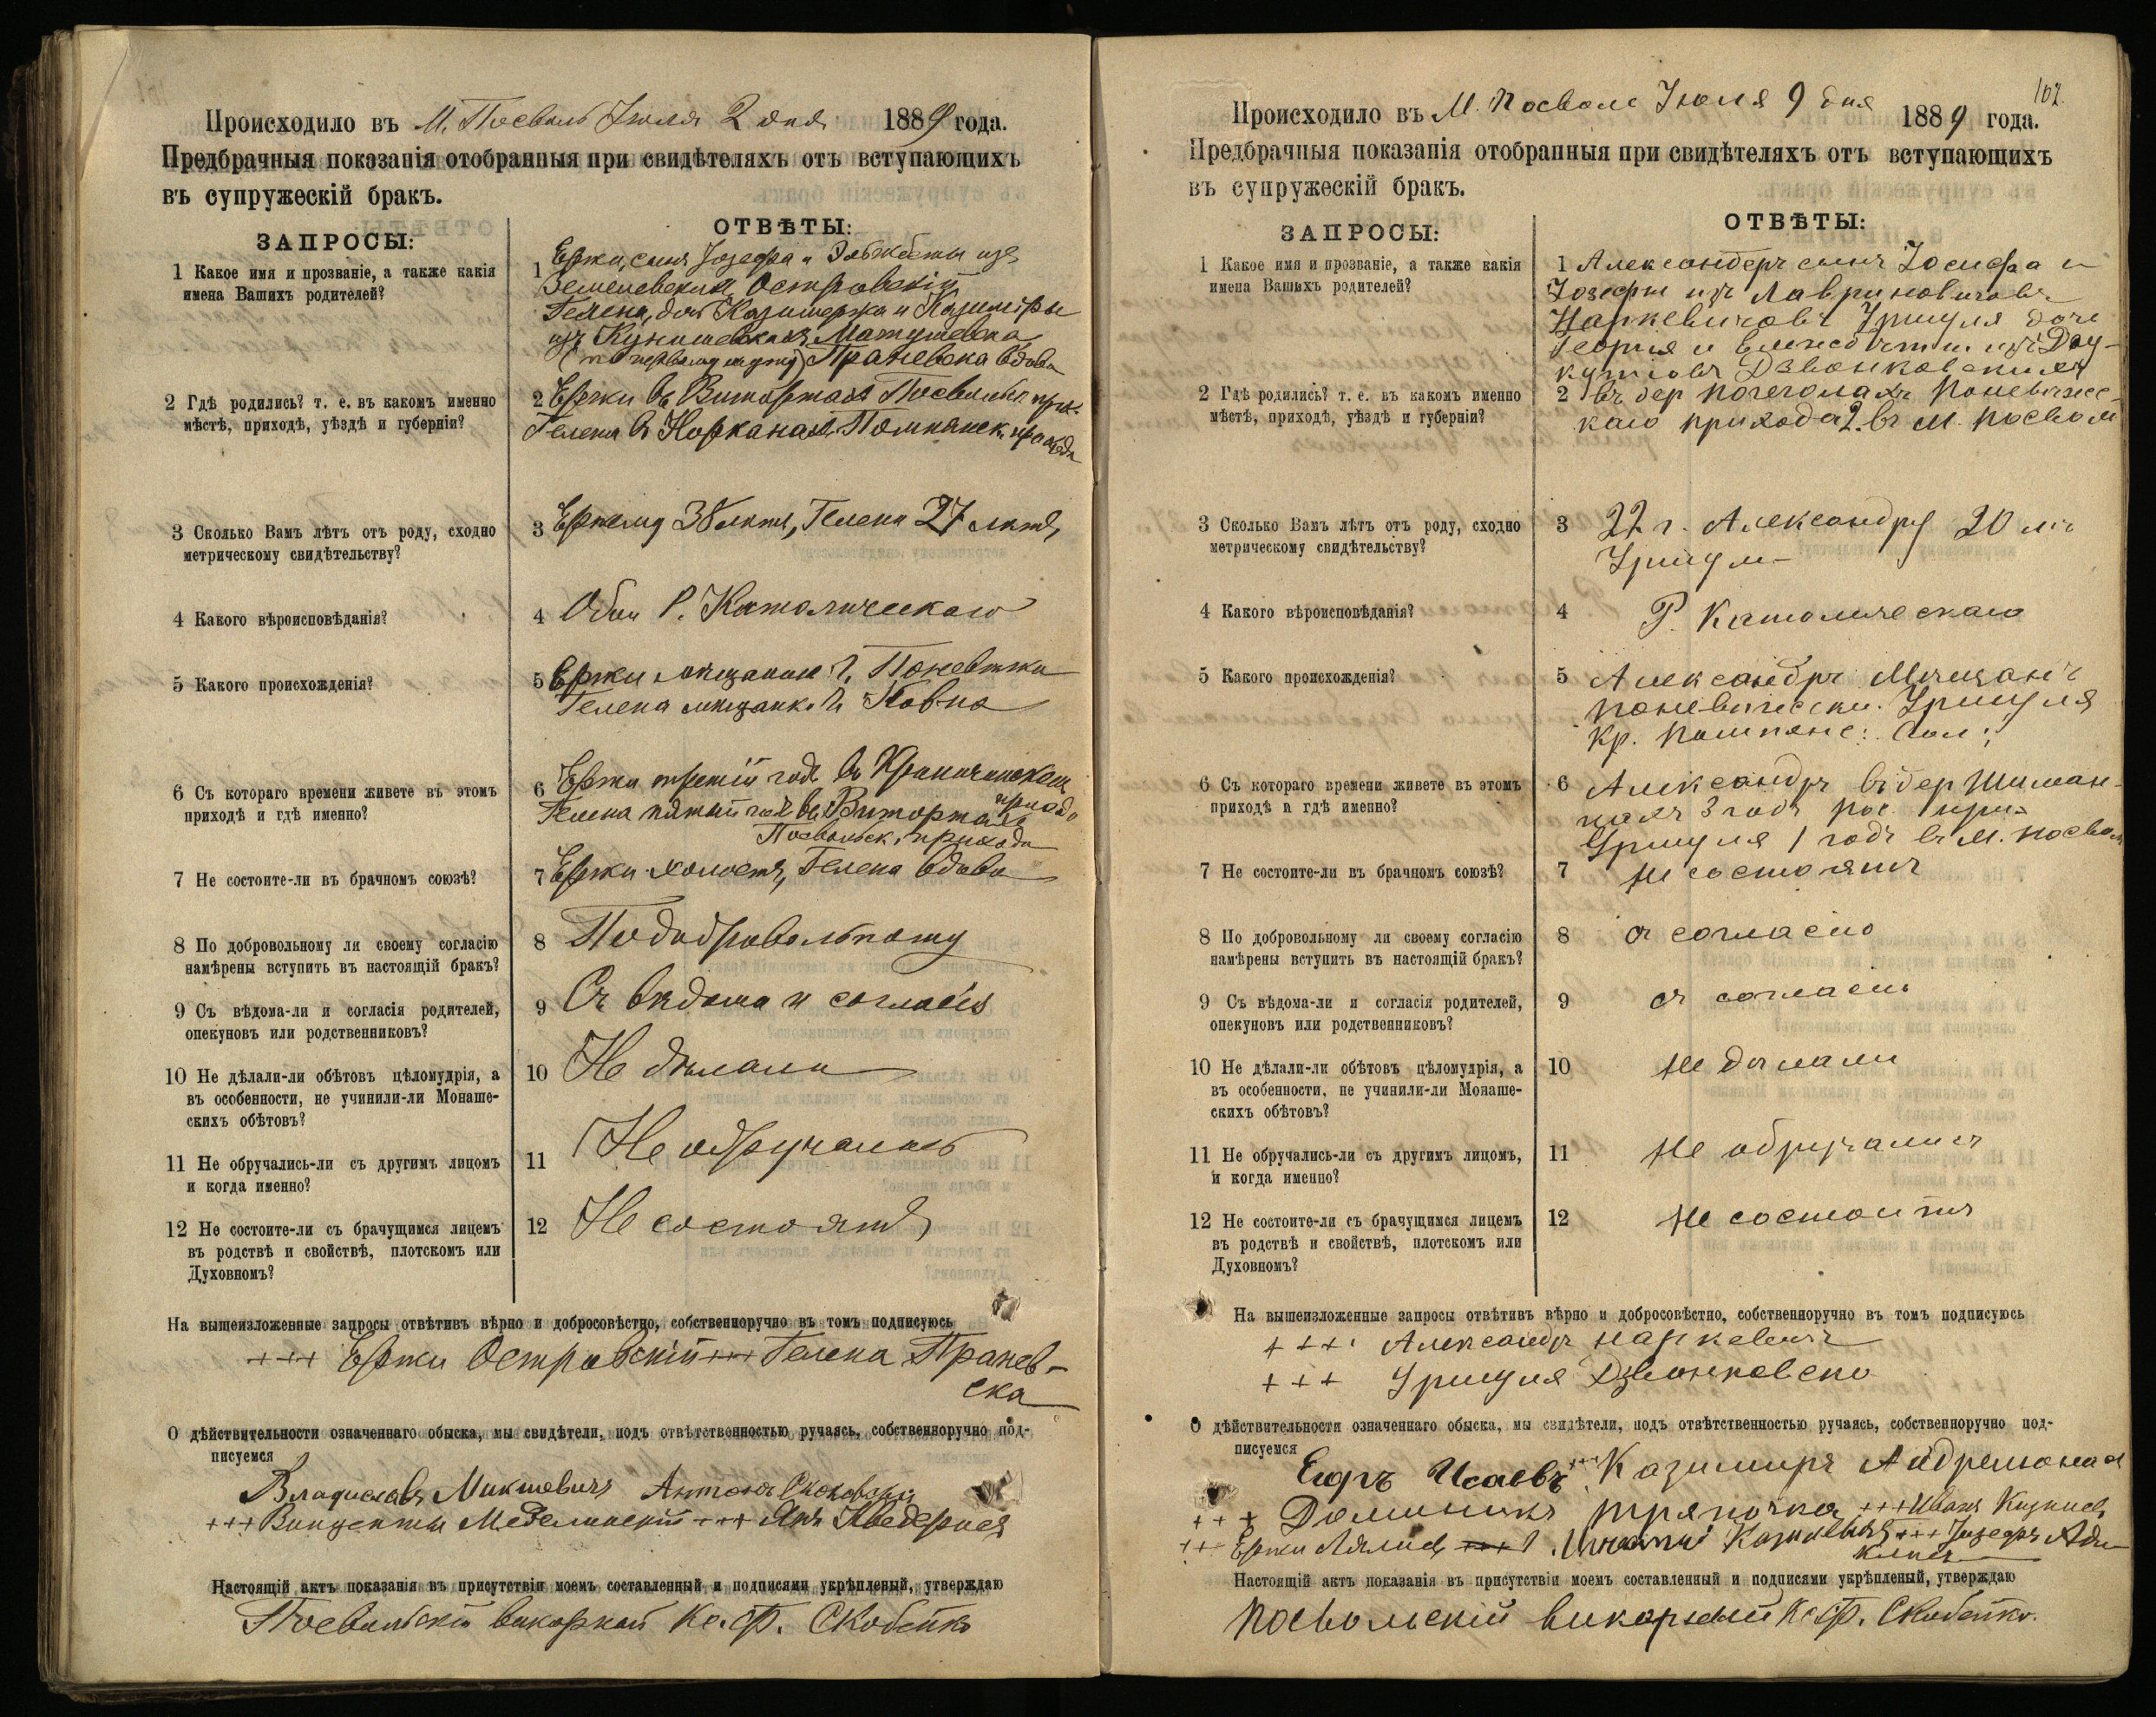 Происходило въ М. Посволь Іюля 2 дня 1889 года.
Предбрачныя показанія отобранныя при свидѣтеляхъ отъ вступающихъ
въ супружескій бракъ.
ЗАПРОСЫ:
ОТВѢТЫ:
1 Какое имя и прозваніе, а также какія
имена Вашихъ родителей?
1 Ержи, сынъ Іозефа и Эльжбеты изъ
Островскій
Гелена, доч Казимержа и Казиміры
изъ Матушевска
(по первому мужу) Праневска вдова
2 Гдѣ родились? т. е. въ какомъ именно
мѣстѣ, приходѣ, уѣздѣ и губерніи?
2 Ержи въ Виторталъ Посвольс. прих.
Гелена въ Норканахъ Помпянск. прихода
3 Сколько Вамъ лѣтъ отъ роду, сходно
метрическому свидѣтельству?
3 Ержему 38 лѣтъ, Гелена 27 лѣтъ,
4 Какого вѣроисповѣданія?
4 Обои Р. Католическаго
5 Какого происхожденія?
5 Ержи мѣщанинъ г. Поневѣжа
Гелена мѣщанк. г. Ковна
6 Съ котораго времени живете въ этомъ
приходѣ и гдѣ именно?
6 Ержи третій годъ въ приходѣ
Гелена пятый годъ въ Виторталъ
Посвольск. прихода
7 Не состоите-ли въ брачномъ союзѣ?
7 Ержи холостъ, Гелена вдова
8 По добровольному ли своему согласію
намѣрены вступить въ настоящій бракъ?
8 По добровольному
9 Съ вѣдома-ли и согласія родителей,
опекуновъ или родственниковъ?
9 Съ вѣдома и согласія
10 Не дѣлали-ли обѣтовъ цѣломудрія, а
въ особенности, не учинили-ли Монаше-
скихъ обѣтовъ?
10 Не дѣлали
11 Не обручались-ли съ другимъ лицомъ
и когда именно?
11 Не обручались
12 Не состоите-ли съ брачущимся лицемъ
въ родствѣ и свойствѣ, плотскомъ или
Духовномъ?
12 Не состоятъ
На вышеизложенные запросы отвѣтивъ вѣрно и добросовѣстно, собственноручно въ томъ подписуюсь
+++ Ержи Островскій +++ Гелена Пранев-
ска
О дѣйствительности означеннаго обыска, мы свидѣтели, подъ отвѣтственностью ручаясь, собственноручно под-
писуемся
Владиславъ Микшевичъ Антонъ
+++ Винценты Меделинскій +++ Янъ
Настоящій актъ показанія въ присутствіи моемъ составленный и подписями укрѣпленый, утверждаю
Посвольскій викорный Кс. Ф. Скобейко
107.
Происходило въ М. Посволе Іюля 9 дня 1889 года.
Предбрачныя показанія отобранныя при свидѣтеляхъ отъ вступающихъ
въ супружескій бракъ.
ЗАПРОСЫ:
ОТВѢТЫ:
1 Какое имя и прозваніе, а также какія
имена Вашихъ родителей?
1 Александеръ сынъ Іосифа и
Іозефы изъ Лавриновичовъ
Наркевичовъ Уршуля доч
Георгія и изъ Доу-
Дзвонковскихъ
2 Гдѣ родились? т. е. въ какомъ именно
мѣстѣ, приходѣ, уѣздѣ и губерніи?
2 1 въ дер Поневѣжес-
каго прихода 2. въ М. Посвом
3 Сколько Вамъ лѣтъ отъ роду, сходно
метрическому свидѣтельству?
3 22 г. Александру 20 л.
Уршули
4 Какого вѣроисповѣданія?
4 Р. Католическаго
5 Какого происхожденія?
5 Александръ Мѣщанъ
поневѣжески. Уршуля
кр. помпянс: вол:
6 Съ котораго времени живете въ этомъ
приходѣ а гдѣ именно?
6 Александръ въ дер Шиман-
цахъ 3 годъ пос. при.
Уршуля 1 годъ въ М. Посвом
7 Не состоите-ли въ брачномъ союзѣ?
7 не состоятъ
8 По добровольному ли своему согласію
намѣрены вступить въ настоящій бракъ?
8 съ согласію
9 Съ вѣдома-ли и согласія родителей,
опекуновъ или родственниковъ?
9 съ согласію
10 Не дѣлали-ли обѣтовъ цѣломудрія, а
въ особенности, не учинили-ли Монаше-
скихъ обѣтовъ?
10 не дѣлали
11 Не обручались-ли съ другимъ лицомъ,
и когда именно?
11 не обручались
12 Не состоите-ли съ брачущимся лицемъ
въ родствѣ и свойствѣ, плотскомъ или
Духовномъ?
12 не состоитъ
На вышеизложенные запросы отвѣтивъ вѣрно и добросовѣстно, собственноручно въ томъ подписуюсь
+++ Александръ Наркевичъ
+++ Уршуля Дзвонковско
О дѣйствительности означеннаго обыска, мы свидѣтели, подъ отвѣтственностью ручаясь, собственноручно под-
писуемся
Егоръ Исаевъ +++ Казимиръ
+++ Доминикъ Тряпочка +++ Иванъ
+++ Ержи +++ Іозефъ
Настоящій актъ показанія въ присутствіи моемъ составленный и подписями укрѣпленый, утверждаю
Посвольскій викорный Кс. Ф. Скобейко.